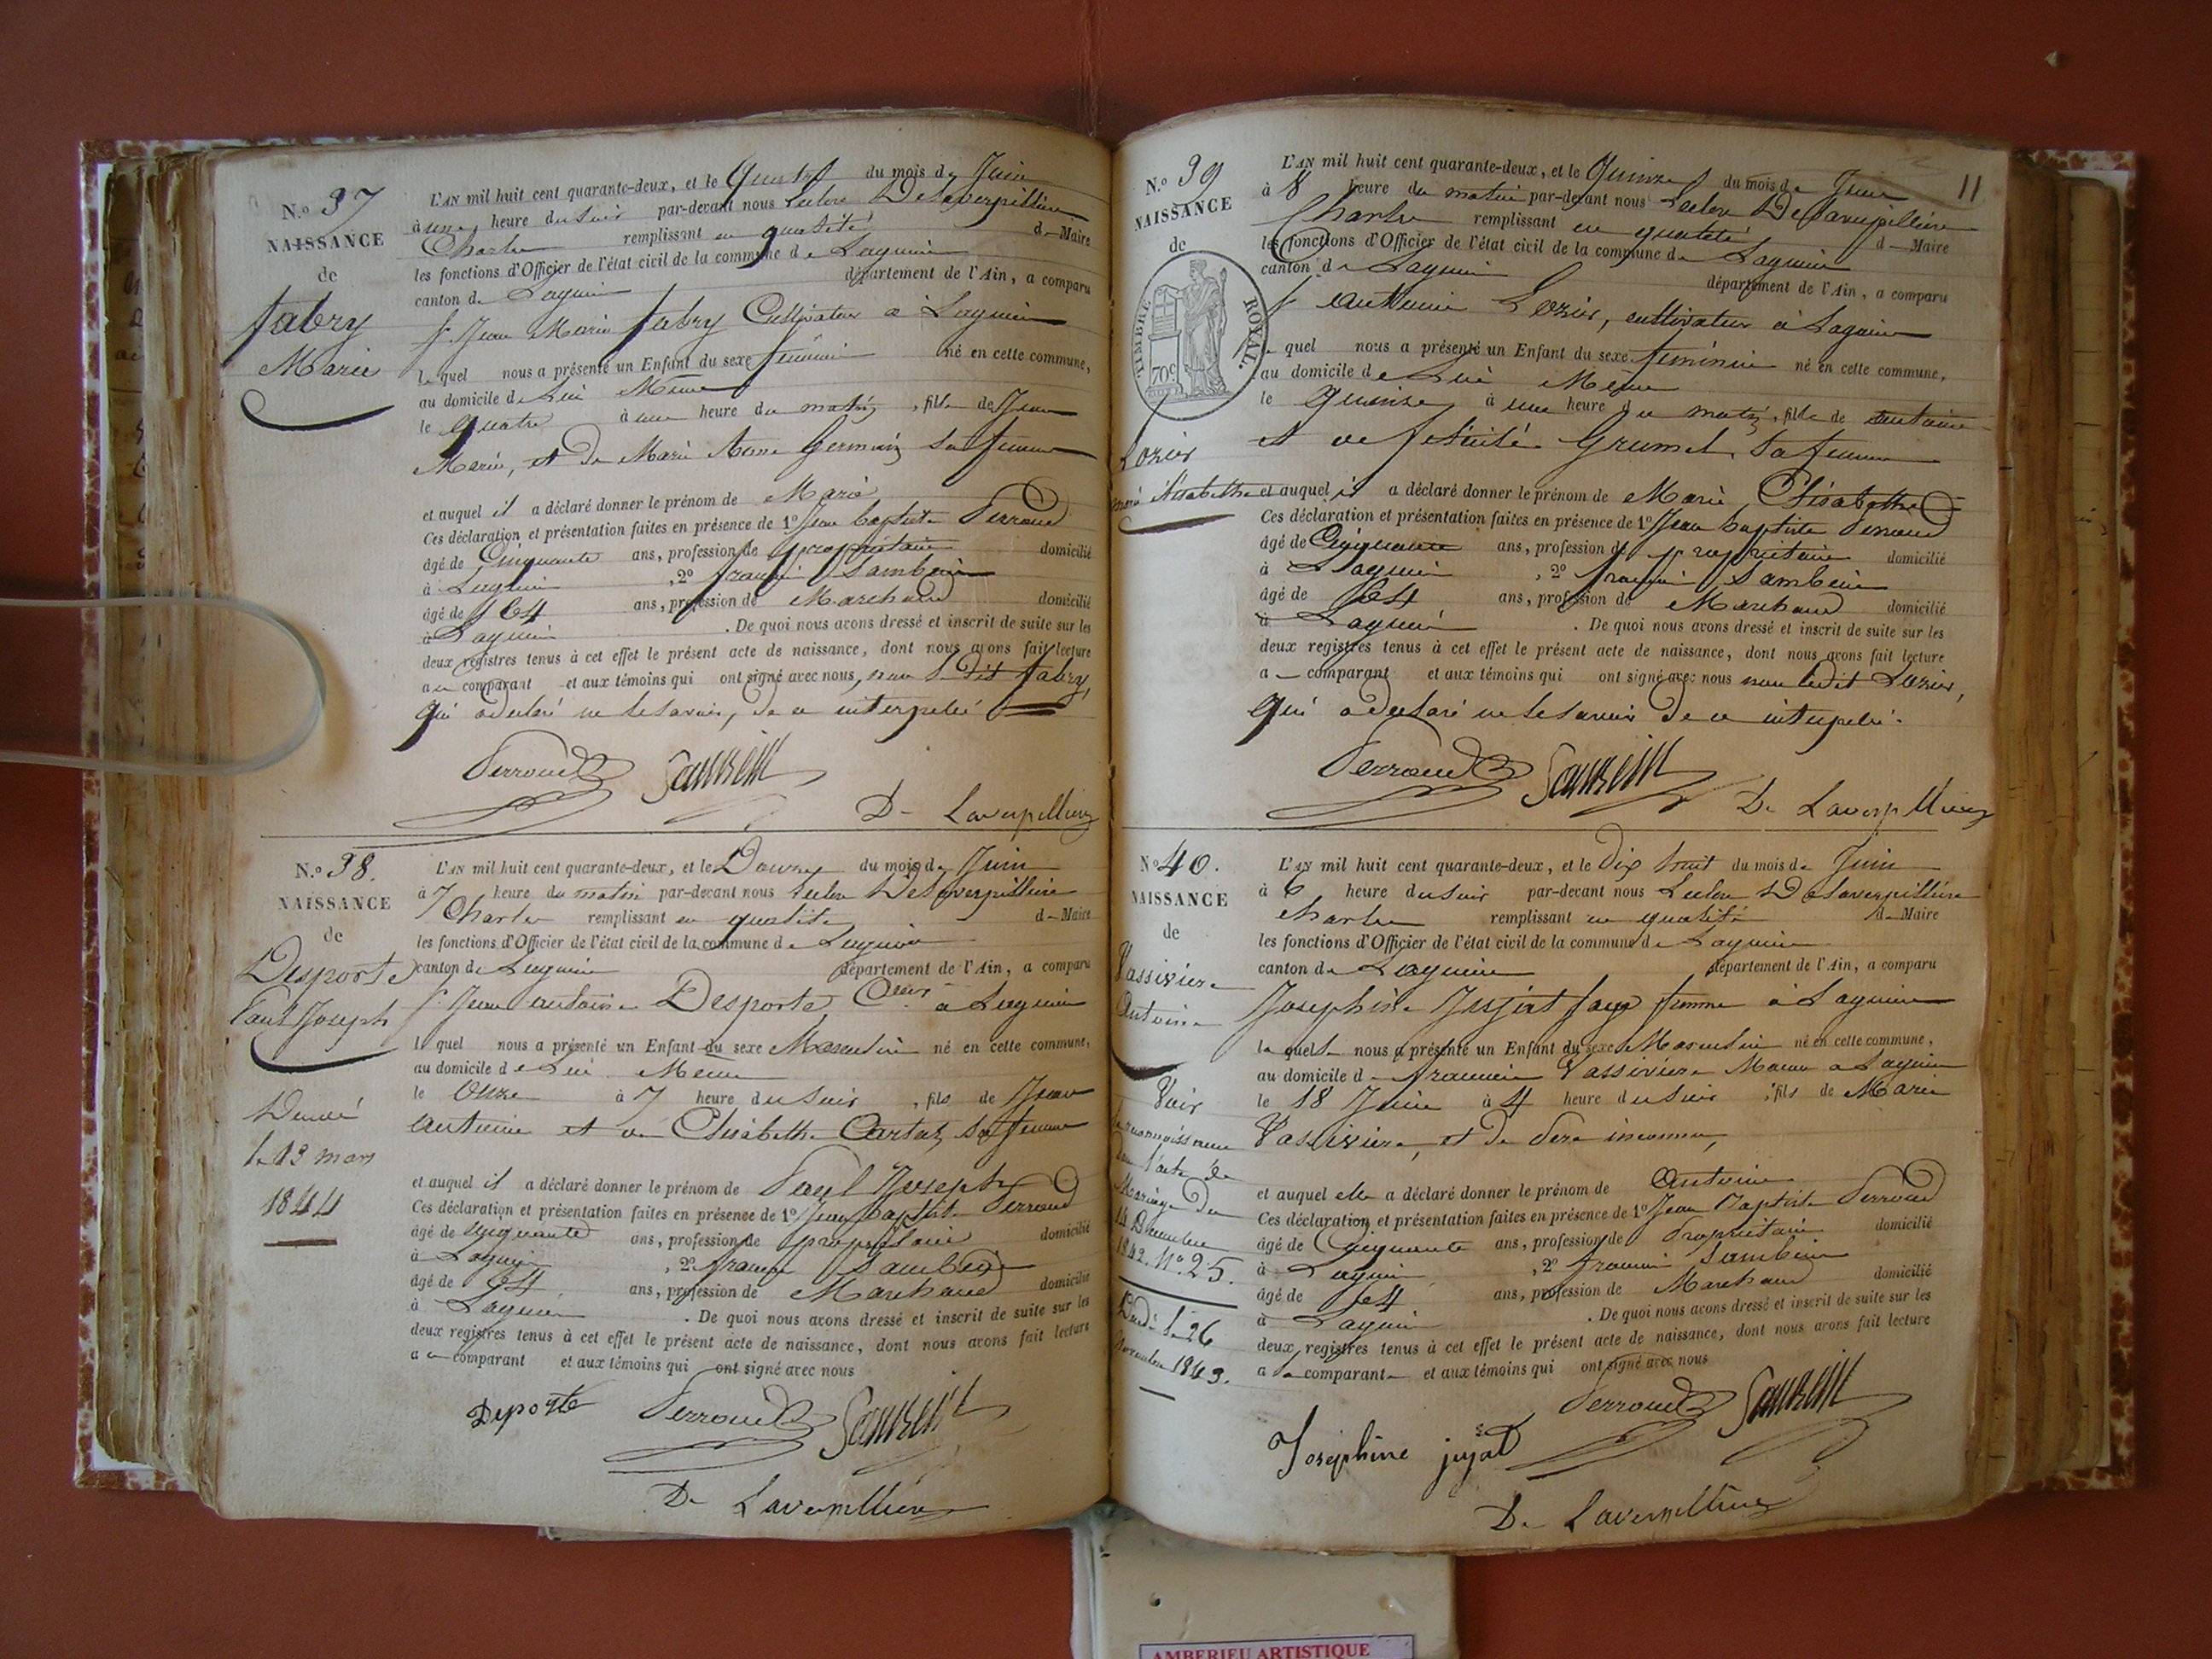 N.o 37
NAISSANCE
de
fabry
Marie
L'AN mil huit cent quarante-deux, et le quatre du mois de Juin
à une heure du soir par-devant nous Leclerc De Laverpillière
Charles remplissant en qualité de Maire
les fonctions d'Officier de l'état civil de la commune de Lagnieu
canton de Lagnieu département de l'Ain, a comparu
Sr Jean Marie fabry Cultivateur à Lagnieu
le quel nous a présenté un Enfant du sexe féminin né en cette commune,
au domicile de Lui Même
le quatre à une heure du matin, fille de Jean
Marie, et de Marie Anne Germain Sa femme
et auquel il a déclaré donner le prénom de Marie
Ces déclaration et présentation faites en présence de 1o Jean baptiste Perroud
âgé de Cinquante ans, profession de propriétaire domicilié
à Lagnieu, 2o françois Sambein
âgé de 64 ans, profession de Marchand domicilié
à Lagnieu. De quoi nous avons dressé et inscrit de suite sur les
deux registres tenus à cet effet le présent acte de naissance, dont nous avons fait lecture
au comparant et aux témoins qui ont signé avec nous, non le dit fabry,
qui a déclaré ne le savoir, de ce interpellé
Perroud Sambein
De Laverpillière
N.o 38.
NAISSANCE
de
Desporte
Paul Joseph
Décédé
le 13 mars
1844
L'AN mil huit cent quarante-deux, et le Douze du mois de Juin
à 7 heure du matin par-devant nous Leclerc De Laverpillière
Charles remplissant en qualité de Maire
les fonctions d'Officier de l'état civil de la commune de Lagnieu
canton de Lagnieu département de l'Ain, a comparu
Sr Jean antoine Desporte, à Lagnieu
le quel nous a présenté un Enfant du sexe Masculin né en cette commune,
au domicile de Lui Même
le Onze à 7 heure du soir, fils de Jean
antoine et de Elisabeth Cartat, sa femme
et auquel il a déclaré donner le prénom de Paul Joseph
Ces déclaration et présentation faites en présence de 1o Jean baptiste Perroud
âgé de cinquante ans, profession de propriétaire domicilié
à Lagnieu, 2o françois Sambein
âgé de 64 ans, profession de Marchand domicilié
à Lagnieu. De quoi nous avons dressé et inscrit de suite sur les
deux registres tenus à cet effet le présent acte de naissance, dont nous avons fait lecture
au comparant et aux témoins qui ont signé avec nous
Deporte Perroud Sambein
De Laverpillière
11
N.o 39
NAISSANCE
de
TIMBRE ROYAL.
70c
Lozier
Marie Elisabethe
L'AN mil huit cent quarante-deux, et le Quinze du mois de Juin
à 8 heure du matin par-devant nous Leclerc De Laverpillière
Charles remplissant en qualité de Maire
les fonctions d'Officier de l'état civil de la commune de Lagnieu
canton de Lagnieu département de l'Ain, a comparu
Sr Antoine Lozier, cultivateur à Lagnieu
le quel nous a présenté un Enfant du sexe féminin né en cette commune,
au domicile de Lui Même
le Quinze, à une heure du matin, fille de antoine
et de félicité Grumel, Sa femme
et auquel il a déclaré donner le prénom de Marie Elisabethe
Ces déclaration et présentation faites en présence de 1o Jean baptiste Perroud
âgé de Cinquante ans, profession de propriétaire domicilié
à Lagnieu, 2o françois Sambein
âgé de 64 ans, profession de Marchand domicilié
à Lagnieu. De quoi nous avons dressé et inscrit de suite sur les
deux registres tenus à cet effet le présent acte de naissance, dont nous avons fait lecture
au comparant et aux témoins qui ont signé avec nous non ledit Lozier,
qui a déclaré ne le savoir de ce interpellé.
Perroud Sambein
De Laverpillière
No 40.
NAISSANCE
de
Vassiviere
Antoine
Voir
reconnaissance
dans l'acte de
Mariage du
14 Décembre
1842. No 25.
Décédé le 26
Novembre 1843.
L'AN mil huit cent quarante-deux, et le Dix huit du mois de Juin
à 6 heure du soir par-devant nous Leclerc De Laverpillière
Charles remplissant en qualité de Maire
les fonctions d'Officier de l'état civil de la commune de Lagnieu
canton de Lagnieu département de l'Ain, a comparu
Josephine Jujat sage femme à Lagnieu
la quelle nous a présenté un Enfant du sexe Masculin né en cette commune,
au domicile de françois Vassiviere Maçon à Lagnieu
le 18 Juin à 4 heure du soir, fils de Marie
Vassiviere, et de Père inconnu,
et auquel elle a déclaré donner le prénom de Antoine
Ces déclaration et présentation faites en présence de 1o Jean Baptiste Perroud
âgé de Cinquante ans, profession de Propriétaire domicilié
à Lagnieu, 2o françois Sambein
âgé de 64 ans, profession de Marchand domicilié
à Lagnieu. De quoi nous avons dressé et inscrit de suite sur les
deux registres tenus à cet effet le présent acte de naissance, dont nous avons fait lecture
a la comparante et aux témoins qui ont signé avec nous
Perroud Sambein
Joséphine jujat
De Laverpillière
AMBERIEU ARTISTIQUE